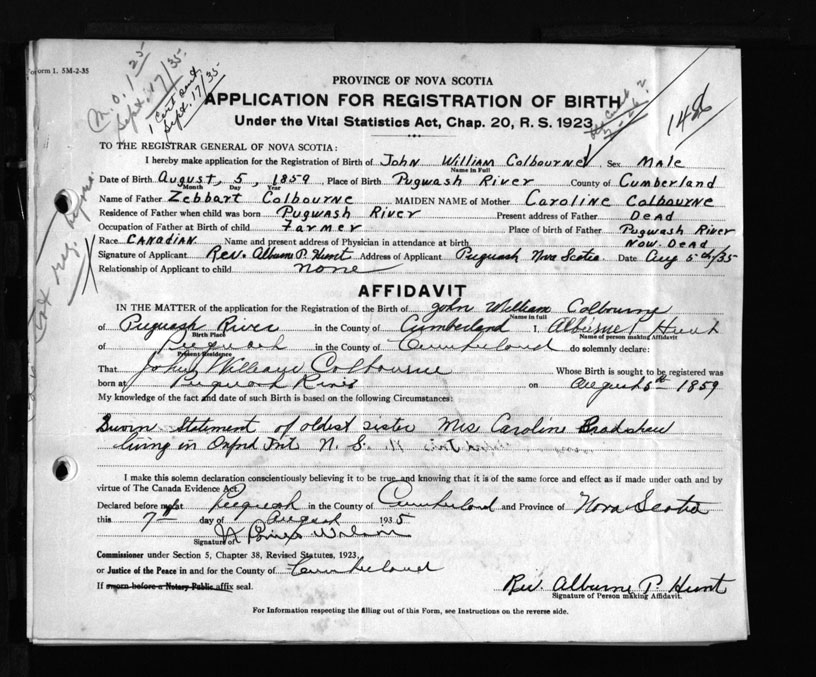 Form 1. 5M-2-35
M.O. 1.25
Sept. 17/35
1 Cert sent
Sept. 17/35
PROVINCE OF NOVA SCOTIA
APPLICATION FOR REGISTRATION OF BIRTH
Under the Vital Statistics Act, Chap. 20, R. S. 1923
TO THE REGISTRAR GENERAL OF NOVA SCOTIA:
I hereby make application for the Registration of Birth of John William Colbourne Sex Male
Name in Full
Date of Birth August, 5, 1859 Place of Birth Pugwash River County of Cumberland
Month Day Year
Name of Father Zebbart Colbourne MAIDEN NAME of Mother Caroline Colbourne
Residence of Father when child was born Pugwash River Present address of Father Dead
Occupation of Father at Birth of child Farmer Place of birth of Father Pugwash River
Race CANADIAN Name and present address of Physician in attendance at birth Now Dead
Signature of Applicant Rev. Alburne P. Hunt Address of Applicant Pugwash Nova Scotia Date Aug 5th/35
Relationship of Applicant to child None
AFFIDAVIT
IN THE MATTER of the application for the Registration of the Birth of John William Colbourne
Name in full
of Pugwash River in the County of Cumberland I, Alburne P Hunt
Birth Place Name of person making Affidavit
of Pugwash in the County of Cumberland do solemnly declare:
Present Residence
That John William Colbourne Whose Birth is sought to be registered was
born at Pugwash River on August 5th 1859
My knowledge of the fact and date of such Birth is based on the following Circumstances:
Sworn Statement of oldest sister Mrs Caroline Bradshaw
living in Oxford Jnt N. S.
I make this solemn declaration conscientiously believing it to be true and knowing that it is of the same force and effect as if made under oath and by
virtue of The Canada Evidence Act
Declared before me at Pugwash in the County of Cumberland and Province of Nova Scotia
this 7th day of August 1935
Signature of
Commissioner under Section 5, Chapter 38, Revised Statutes, 1923,
or Justice of the Peace in and for the County of Cumberland
If sworn before a Notary Public affix seal.
Rev. Alburne P. Hunt
Signature of Person making Affidavit.
For Information respecting the filling out of this Form, see Instructions on the reverse side.